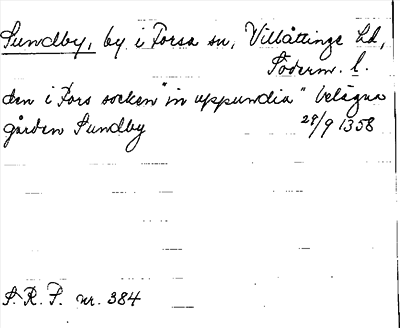 Sundby, by i Forsa sn, Villåttinge hd,
Söderm. l.
den i Fors socken "in uppundia" belägna
gården Sundby 28/9 1358
S. R. P. nr. 384